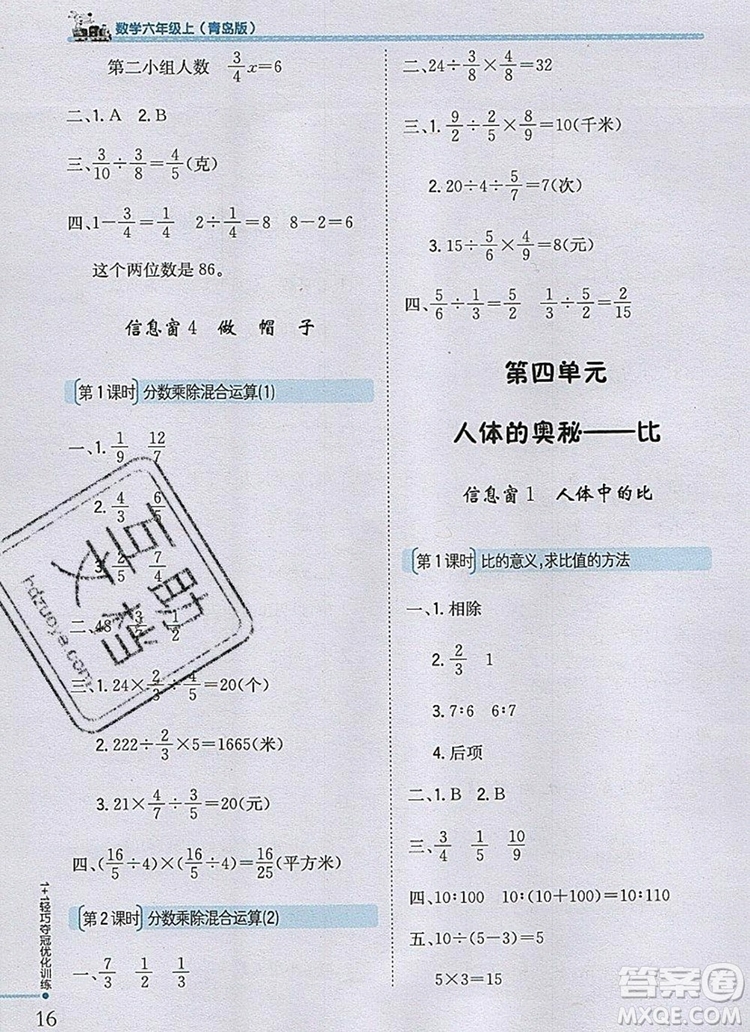 数学六年级上(青岛版)
第二小组人数 3/4x=6
二、1. A 2. B
三、3/10÷3/8=4/5(克)
四、1-3/4=1/4 2÷1/4=8 8-2=6
这个两位数是86。
信息窗4 做帽子
第1课时 分数乘除混合运算(1)
一、1. 1/9 12/7
2. 4/3 6/5
3. 2/5 7/4
二、48 1/2
三、1. 24×2/3÷4/5=20(个)
2. 222÷2/3×5=1665(米)
3. 21×4/7÷3/5=20(元)
四、(16/5÷4)×(16/5÷4)=16/25(平方米)
第2课时 分数乘除混合运算(2)
一、7/3 2/5 1/4 4/5
1+1轻巧夺冠优化训练
16
二、24÷3/8×4/8=32
三、1. 9/2÷2/5×8/9=10(千米)
2. 20÷4÷5/7=7(次)
3. 15÷5/6×4/9=8(元)
四、5/6÷1/3=5/2 1/3÷5/2=2/15
第四单元
人体的奥秘——比
信息窗1 人体中的比
第1课时 比的意义,求比值的方法
一、1. 相除
2. 2/3 1
3. 7:6 6:7
4. 后项
二、1. B 2. B
三、3/4 1/5 10/9
四、10:100 10:(10+100)=10:110
五、10÷(3-1)=5
5×3=15
百助文档
hdzuoye.com
答案圈
MXQE.COM